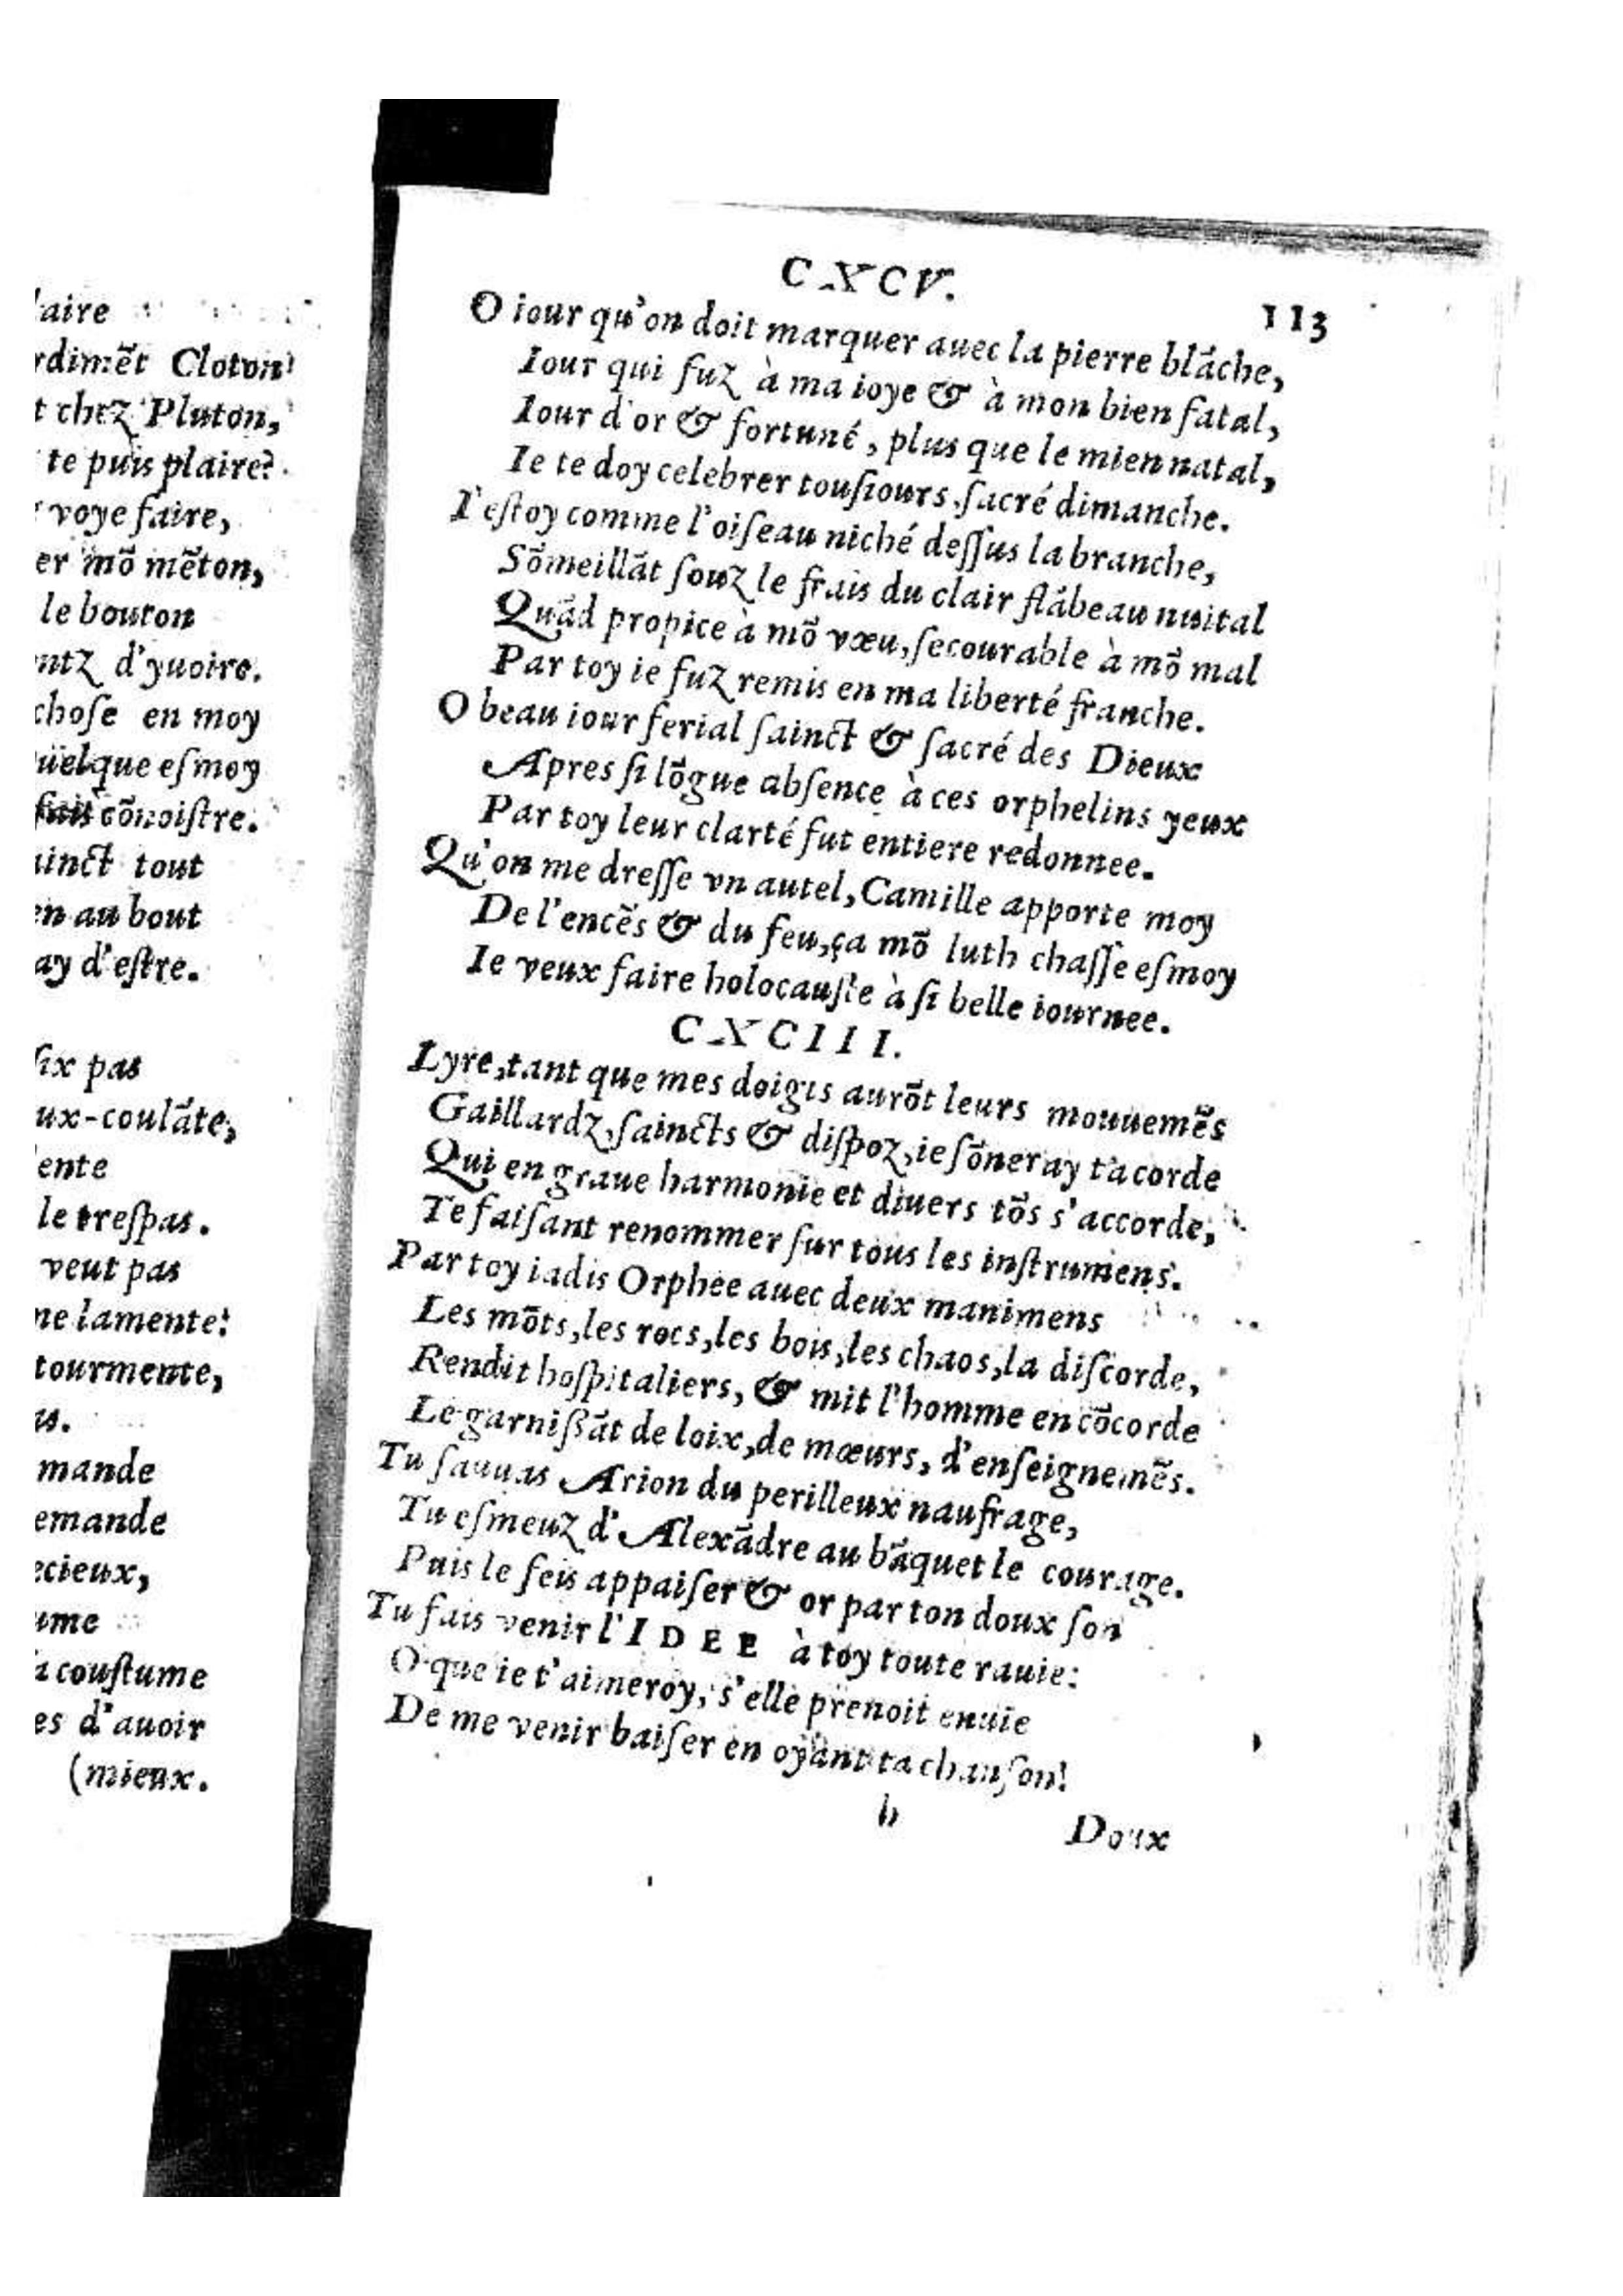 laire
rdimēt Cloton
t chez Pluton,
te puis plaire?
voye faire,
er mō mēton,
le bouton
ntz d'yuoire.
chose en moy
quelque esmoy
fait cōnoiſtre.
ainct tout
en au bout
ay d'eſtre.
ſix pas
ux-coulāte,
lente
le treſpas.
veut pas
me lamente:
tourmente,
as.
mande
emande
ecieux,
ume
la couſtume
es d'auoir
(mieux.
CXCV.
113
O iour qu'on doit marquer auec la pierre blāche,
Iour qui fuz à ma ioye & à mon bien fatal,
Iour d'or & fortuné, plus que le mien natal,
Ie te doy celebrer touſiours, ſacré dimanche.
I'eſtoy comme l'oiſeau niché deſſus la branche,
Sōmeillāt ſouz le frais du clair flābeau nuital
Quād propice à mō vœu, ſecourable à mō mal
Par toy ie fuz remis en ma liberté franche.
O beau iour ferial ſainct & ſacré des Dieux
Apres ſi lōgue abſence à ces orphelins yeux
Par toy leur clarté fut entiere redonnee.
Qu'on me dreſſe vn autel, Camille apporte moy
De l'encēs & du feu, ça mō luth chaſſe eſmoy
Ie veux faire holocauſte à ſi belle iournee.
CXCIII.
Lyre, tant que mes doigts aurōt leurs mouuemēs
Gaillardz, ſaincts & diſpoz, ie ſōneray ta corde
Qui en graue harmonie et diuers tōs s'accorde,
Te faiſant renommer ſur tous les inſtrumens.
Par toy iadis Orphee auec deux manimens
Les mōts, les rocs, les bois, les chaos, la diſcorde,
Rendit hoſpitaliers, & mit l'homme en cōcorde
Le garniſſāt de loix, de mœurs, d'enſeignemēs.
Tu ſauuas Arion du perilleux naufrage,
Tu eſmeuz d'Alexādre au bāquet le courage.
Puis le feis appaiſer & or par ton doux ſon
Tu fais venir l'IDEE à toy toute rauie:
O que ie t'aimeroy, s'elle prenoit enuie
De me venir baiſer en oyant ta chanſon!
h
Doux